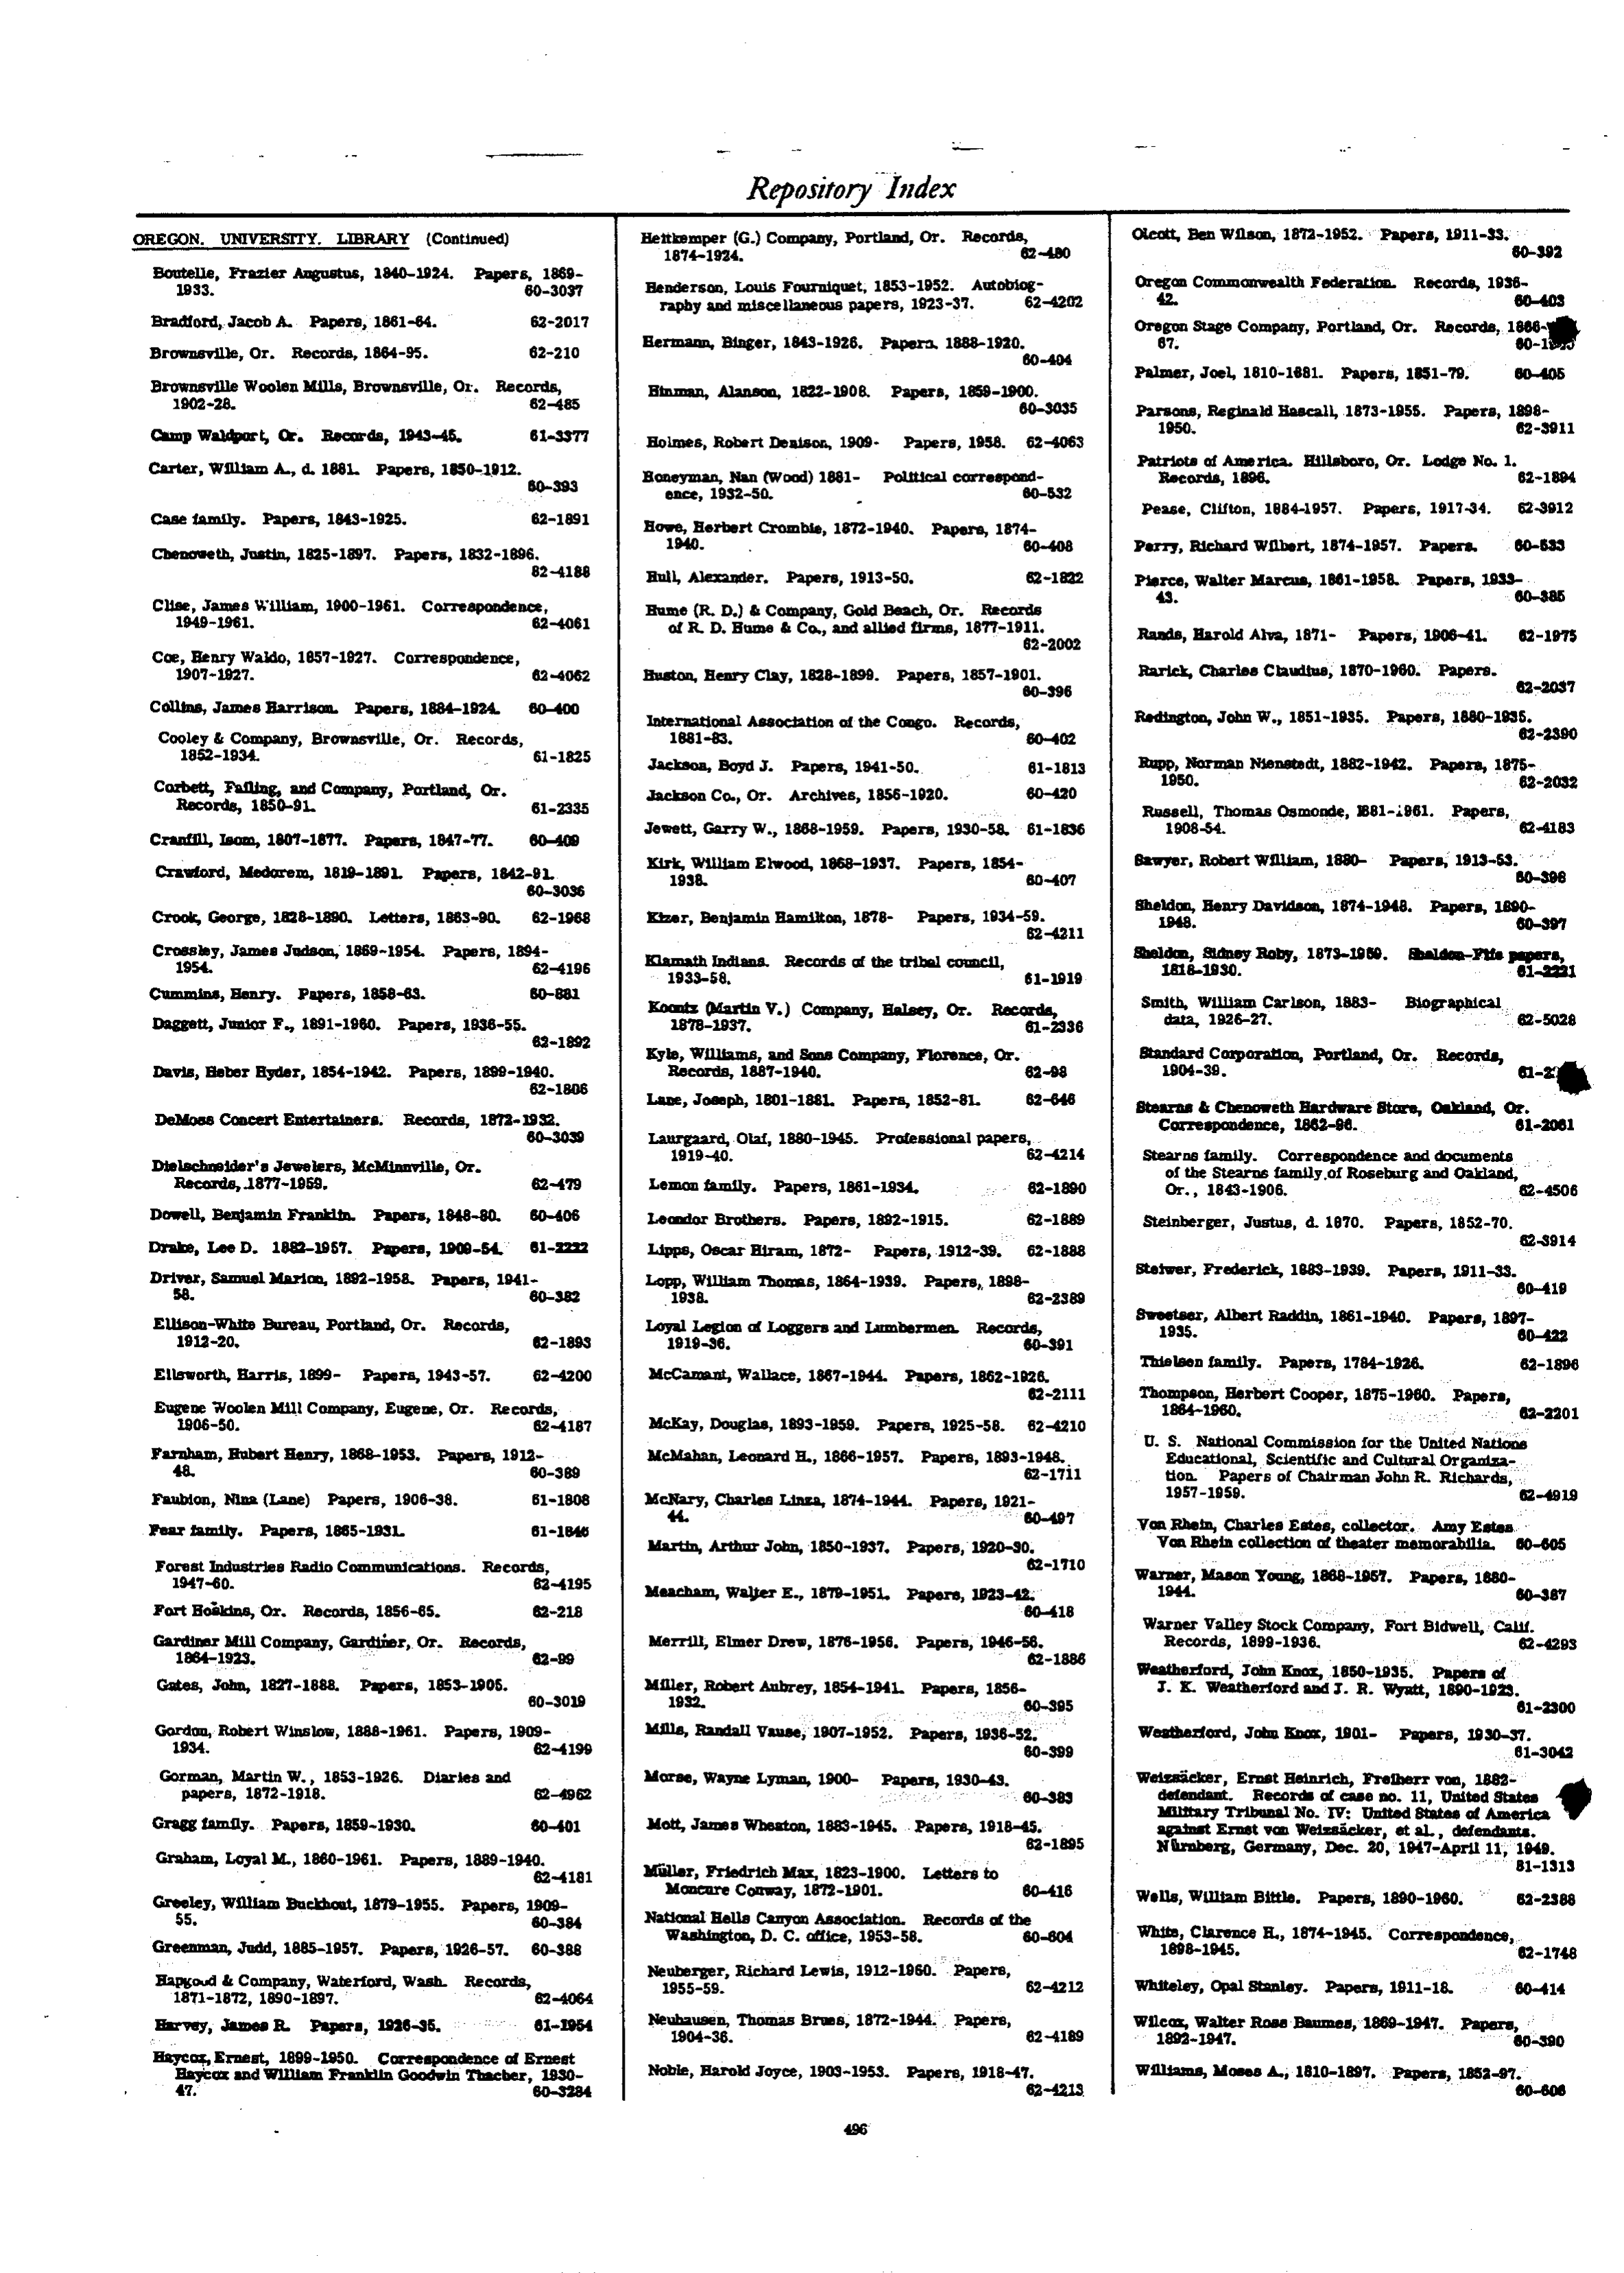 Repository Index
OREGON. UNIVERSITY. LIBRARY (Continued)
Boutelle, Frazier Augustus, 1840-1924. Papers, 1869-
1933. 60-3037
Bradford, Jacob A. Papers, 1861-64. 62-2017
Brownsville, Or. Records, 1864-95. 62-210
Brownsville Woolen Mills, Brownsville, Or. Records,
1902-28. 62-485
Camp Waldport, Or. Records, 1943-45. 61-3377
Carter, William A., d. 1881. Papers, 1850-1912.
60-393
Case family. Papers, 1843-1925. 62-1891
Chenoweth, Justin, 1825-1897. Papers, 1832-1896.
62-4188
Clise, James William, 1900-1961. Correspondence,
1949-1961. 62-4061
Coe, Henry Waldo, 1857-1927. Correspondence,
1907-1927. 62-4062
Collins, James Harrison. Papers, 1884-1924. 60-400
Cooley & Company, Brownsville, Or. Records,
1852-1934. 61-1825
Corbett, Failing, and Company, Portland, Or.
Records, 1850-91. 61-2335
Cranfill, Isom, 1807-1877. Papers, 1847-77. 60-409
Crawford, Medorem, 1819-1891. Papers, 1842-91.
60-3036
Crook, George, 1828-1890. Letters, 1863-90. 62-1968
Crossley, James Judson, 1869-1954. Papers, 1894-
1954. 62-4196
Cummins, Henry. Papers, 1858-63. 60-881
Daggett, Junior F., 1891-1960. Papers, 1936-55.
62-1892
Davis, Heber Hyder, 1854-1942. Papers, 1899-1940.
62-1806
DeMoss Concert Entertainers. Records, 1872-1932.
60-3039
Dielschneider's Jewelers, McMinnville, Or.
Records, 1877-1959. 62-479
Dowell, Benjamin Franklin. Papers, 1848-80. 60-406
Drake, Lee D. 1882-1957. Papers, 1909-54. 61-2222
Driver, Samuel Marion, 1892-1958. Papers, 1941-
58. 60-382
Ellison-White Bureau, Portland, Or. Records,
1912-20. 62-1893
Ellsworth, Harris, 1899- Papers, 1943-57. 62-4200
Eugene Woolen Mill Company, Eugene, Or. Records,
1906-50. 62-4187
Farnham, Hubert Henry, 1868-1953. Papers, 1912-
48. 60-389
Faubion, Nina (Lane) Papers, 1906-38. 61-1808
Fear family. Papers, 1865-1931. 61-1846
Forest Industries Radio Communications. Records,
1947-60. 62-4195
Fort Hoskins, Or. Records, 1856-65. 62-218
Gardiner Mill Company, Gardiner, Or. Records,
1864-1923. 62-99
Gates, John, 1827-1888. Papers, 1853-1905.
60-3019
Gordon, Robert Winslow, 1888-1961. Papers, 1909-
1934. 62-4199
Gorman, Martin W., 1853-1926. Diaries and
papers, 1872-1918. 62-4962
Gragg family. Papers, 1859-1930. 60-401
Graham, Loyal M., 1860-1961. Papers, 1889-1940.
62-4181
Greeley, William Buckhout, 1879-1955. Papers, 1909-
55. 60-384
Greenman, Judd, 1885-1957. Papers, 1926-57. 60-388
Hapgood & Company, Waterford, Wash. Records,
1871-1872, 1890-1897. 62-4064
Harvey, James R. Papers, 1926-35. 61-1954
Haycox, Ernest, 1899-1950. Correspondence of Ernest
Haycox and William Franklin Goodwin Thacher, 1930-
47. 60-3284
Heitkemper (G.) Company, Portland, Or. Records,
1874-1924. 62-480
Henderson, Louis Fourniquet, 1853-1952. Autobiog-
raphy and miscellaneous papers, 1923-37. 62-4202
Hermann, Binger, 1843-1926. Papers. 1888-1920.
60-404
Hinman, Alanson, 1822-1908. Papers, 1859-1900.
60-3035
Holmes, Robert Denison, 1909- Papers, 1958. 62-4063
Honeyman, Nan (Wood) 1881- Political correspond-
ence, 1932-50. 60-532
Howe, Herbert Crombie, 1872-1940. Papers, 1874-
1940. 60-408
Hull, Alexander. Papers, 1913-50. 62-1822
Hume (R. D.) & Company, Gold Beach, Or. Records
of R. D. Hume & Co., and allied firms, 1877-1911.
62-2002
Huston, Henry Clay, 1828-1899. Papers, 1857-1901.
60-396
International Association of the Congo. Records,
1881-83. 60-402
Jackson, Boyd J. Papers, 1941-50. 61-1813
Jackson Co., Or. Archives, 1856-1920. 60-420
Jewett, Garry W., 1868-1959. Papers, 1930-58. 61-1836
Kirk, William Elwood, 1868-1937. Papers, 1854-
1938. 60-407
Kizer, Benjamin Hamilton, 1878- Papers, 1934-59.
62-4211
Klamath Indians. Records of the tribal council,
1933-58. 61-1919
Koontz (Martin V.) Company, Halsey, Or. Records,
1878-1937. 61-2336
Kyle, Williams, and Sons Company, Florence, Or.
Records, 1887-1940. 62-98
Lane, Joseph, 1801-1881. Papers, 1852-81. 62-646
Laurgaard, Olaf, 1880-1945. Professional papers,
1919-40. 62-4214
Lemon family. Papers, 1861-1934. 62-1890
Leondor Brothers. Papers, 1892-1915. 62-1889
Lipps, Oscar Hiram, 1872- Papers, 1912-39. 62-1888
Lopp, William Thomas, 1864-1939. Papers, 1898-
1938. 62-2389
Loyal Legion of Loggers and Lumbermen. Records,
1919-36. 60-391
McCamant, Wallace, 1867-1944. Papers, 1862-1926.
62-2111
McKay, Douglas, 1893-1959. Papers, 1925-58. 62-4210
McMahan, Leonard H., 1866-1957. Papers, 1893-1948.
62-1711
McNary, Charles Linza, 1874-1944. Papers, 1921-
44. 60-497
Martin, Arthur John, 1850-1937. Papers, 1920-30.
62-1710
Meacham, Walter E., 1879-1951. Papers, 1923-42.
60-418
Merrill, Elmer Drew, 1876-1956. Papers, 1946-56.
62-1886
Miller, Robert Aubrey, 1854-1941. Papers, 1856-
1932. 60-395
Mills, Randall Vause, 1907-1952. Papers, 1936-52.
60-399
Morse, Wayne Lyman, 1900- Papers, 1930-43.
60-383
Mott, James Wheaton, 1883-1945. Papers, 1918-45.
62-1895
Müller, Friedrich Max, 1823-1900. Letters to
Moncure Conway, 1872-1901. 60-416
National Hells Canyon Association. Records of the
Washington, D. C. office, 1953-58. 60-604
Neuberger, Richard Lewis, 1912-1960. Papers,
1955-59. 62-4212
Neuhausen, Thomas Brues, 1872-1944. Papers,
1904-36. 62-4189
Noble, Harold Joyce, 1903-1953. Papers, 1918-47.
62-4213
Olcott, Ben Wilson, 1872-1952. Papers, 1911-33.
60-392
Oregon Commonwealth Federation. Records, 1936-
42. 60-403
Oregon Stage Company, Portland, Or. Records, 1866-
67.
Palmer, Joel, 1810-1881. Papers, 1851-79. 60-405
Parsons, Reginald Hascall, 1873-1955. Papers, 1898-
1950. 62-3911
Patriots of America. Hillsboro, Or. Lodge No. 1.
Records, 1896. 62-1894
Pease, Clifton, 1884-1957. Papers, 1917-34. 62-3912
Perry, Richard Wilbert, 1874-1957. Papers. 60-533
Pierce, Walter Marcus, 1861-1958. Papers, 1933-
43. 60-385
Rands, Harold Alva, 1871- Papers, 1906-41. 62-1975
Rarick, Charles Claudius, 1870-1960. Papers.
62-2037
Redington, John W., 1851-1935. Papers, 1880-1935.
62-2390
Rupp, Norman Nienstedt, 1882-1942. Papers, 1875-
1950. 62-2032
Russell, Thomas Osmonde, 1881-1961. Papers,
1908-54. 62-4183
Sawyer, Robert William, 1880- Papers, 1913-53.
60-398
Sheldon, Henry Davidson, 1874-1948. Papers, 1890-
1948. 60-397
Sheldon, Sidney Roby, 1873-1960. Sheldon-Fife papers,
1818-1930. 61-2221
Smith, William Carlson, 1883- Biographical
data, 1926-27. 62-5028
Standard Corporation, Portland, Or. Records,
1904-39.
Stearns & Chenoweth Hardware Store, Oakland, Or.
Correspondence, 1862-96. 61-2061
Stearns family. Correspondence and documents
of the Stearns family of Roseburg and Oakland,
Or., 1843-1906. 62-4506
Steinberger, Justus, d. 1870. Papers, 1852-70.
62-3914
Steiwer, Frederick, 1883-1939. Papers, 1911-33.
60-419
Sweetser, Albert Raddin, 1861-1940. Papers, 1897-
1935. 60-422
Thielsen family. Papers, 1784-1926. 62-1896
Thompson, Herbert Cooper, 1875-1960. Papers,
1864-1960. 62-2201
U. S. National Commission for the United Nations
Educational, Scientific and Cultural Organiza-
tion. Papers of Chairman John R. Richards,
1957-1959. 62-4919
Von Rhein, Charles Estes, collector. Amy Estes
Von Rhein collection of theater memorabilia. 60-605
Warner, Mason Young, 1868-1957. Papers, 1880-
1944. 60-387
Warner Valley Stock Company, Fort Bidwell, Calif.
Records, 1899-1936. 62-4293
Weatherford, John Knox, 1850-1935. Papers of
J. K. Weatherford and J. R. Wyatt, 1890-1923.
61-2300
Weatherford, John Knox, 1901- Papers, 1930-37.
61-3042
Weizsäcker, Ernst Heinrich, Freiherr von, 1882-
defendant. Records of case no. 11, United States
Military Tribunal No. IV: United States of America
against Ernst von Weizsäcker, et al., defendants.
Nürnberg, Germany, Dec. 20, 1947-April 11, 1949.
61-1313
Wells, William Bittle. Papers, 1890-1960. 62-2388
White, Clarence H., 1874-1945. Correspondence,
1898-1945. 62-1748
Whiteley, Opal Stanley. Papers, 1911-18. 60-414
Wilcox, Walter Ross Baumes, 1869-1947. Papers,
1892-1947. 60-390
Williams, Moses A., 1810-1897. Papers, 1852-97.
60-606
496